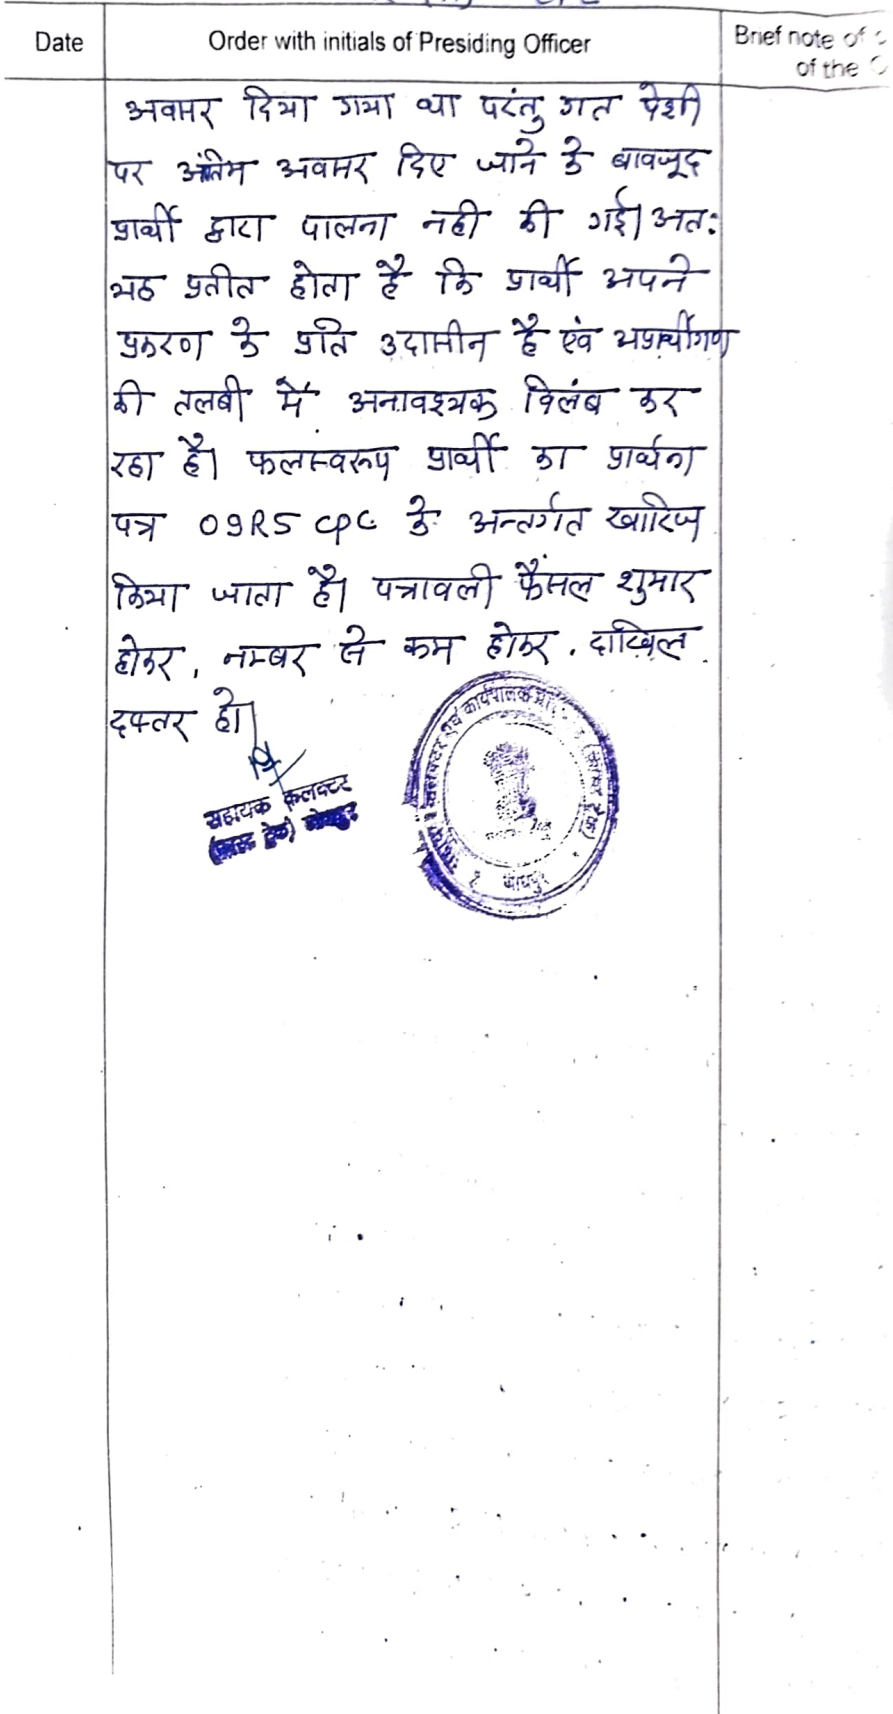 Date
Order with initials of Presiding Officer
Brief note of
of the
अवसर दिया गया था परंतु गत पेशी
पर अंतिम अवसर दिए जाने के बावजूद
प्रार्थी द्वारा पालना नही की गई। अतः
यह प्रतीत होता है कि प्रार्थी अपने
प्रकरण के प्रति उदासीन है एंव अप्रार्थीगण
की तलबी में अनावश्यक विलंब कर
रहा है। फलस्वरूप प्रार्थी का प्रार्थना
पत्र O9R5 CPC के अन्तर्गत खारिज
किया जाता है। पत्रावली फैंसल शुमार
होकर, नम्बर से कम होकर, दाखिल
दफ्तर हो।
सहायक कलक्टर
(फास्ट ट्रेक)
एवं कार्यपालक